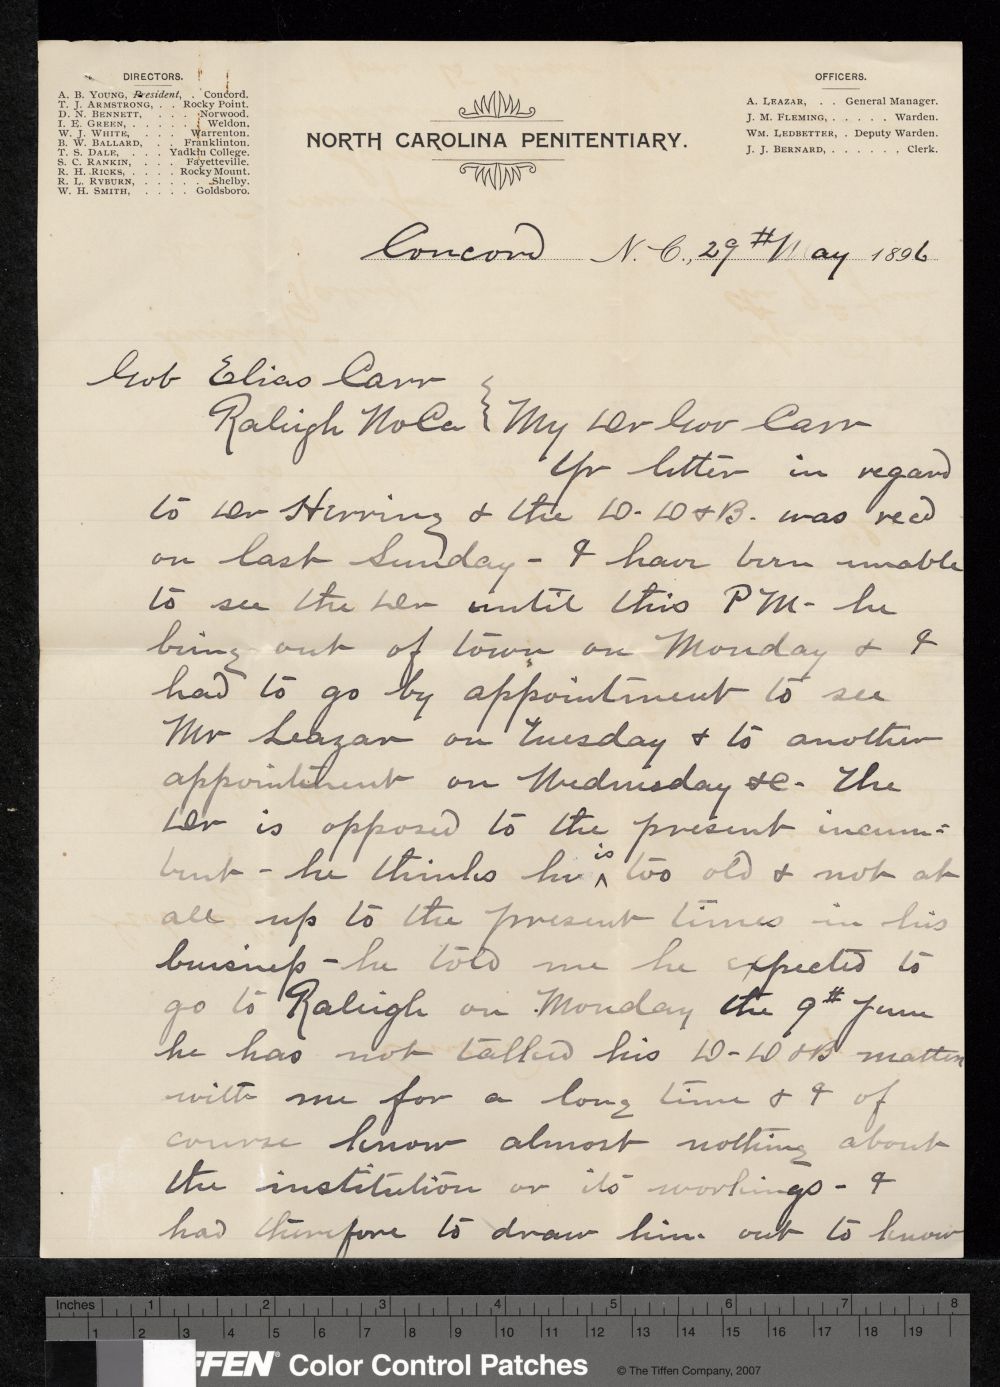 DIRECTORS.
A. B. YOUNG, President, . Concord.
T. J. ARMSTRONG, . . Rocky Point.
D. N. BENNETT, . . . . Norwood.
I. E. GREEN, . . . . . Weldon.
W. J. WHITE, . . . . Warrenton.
B. W. BALLARD, . . Franklinton.
T. S. DALE, . . . Yadkin College.
S. C. RANKIN, . . . Fayetteville.
R. H. RICKS, . . . . Rocky Mount.
R. L. RYBURN, . . . . . Shelby.
W. H. SMITH, . . . . Goldsboro.
NORTH CAROLINA PENITENTIARY.
OFFICERS.
A. LEAZAR, . . General Manager.
J. M. FLEMING, . . . . . Warden.
WM. LEDBETTER, . Deputy Warden.
J. J. BERNARD, . . . . . . Clerk.
Concord N. C., 29th May 1896
Gov Elias Carr
Raleigh No Ca } My Dr Gov Carr
Yr letter in regard
to Dr Herring & the D. D & B. was recd
on last Sunday - I have been unable
to see the Dr until this P M - he
being out of town on Monday & I
had to go by appointment to see
Mr Leazar on Tuesday & to another
appointment on Wednesday &c - The
Dr is opposed to the present incum=
bent - he thinks he is too old & not at
all up to the present times in his
buisness - he told me he expected to
go to Raleigh on Monday the 9th June
he has not talked his D - D & B matter
with me for a long time & I of
course know almost nothing about
the institution or its workings - I
had therefore to draw him out to know
Inches 1 2 3 4 5 6 7 8
1 2 3 4 5 6 7 8 9 10 11 12 13 14 15 16 17 18 19
FFEN® Color Control Patches © The Tiffen Company, 2007